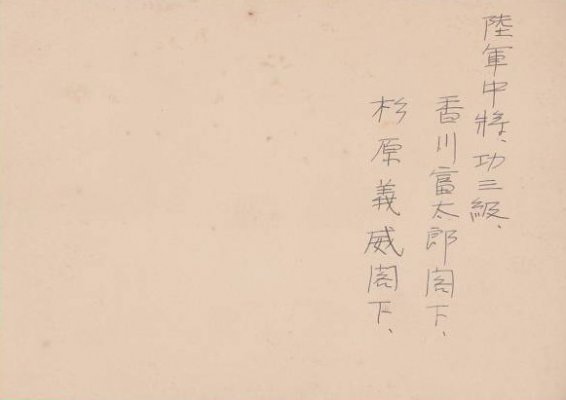 陸軍中将、功三級、
香川富太郎閣下、
杉原義威閣下、